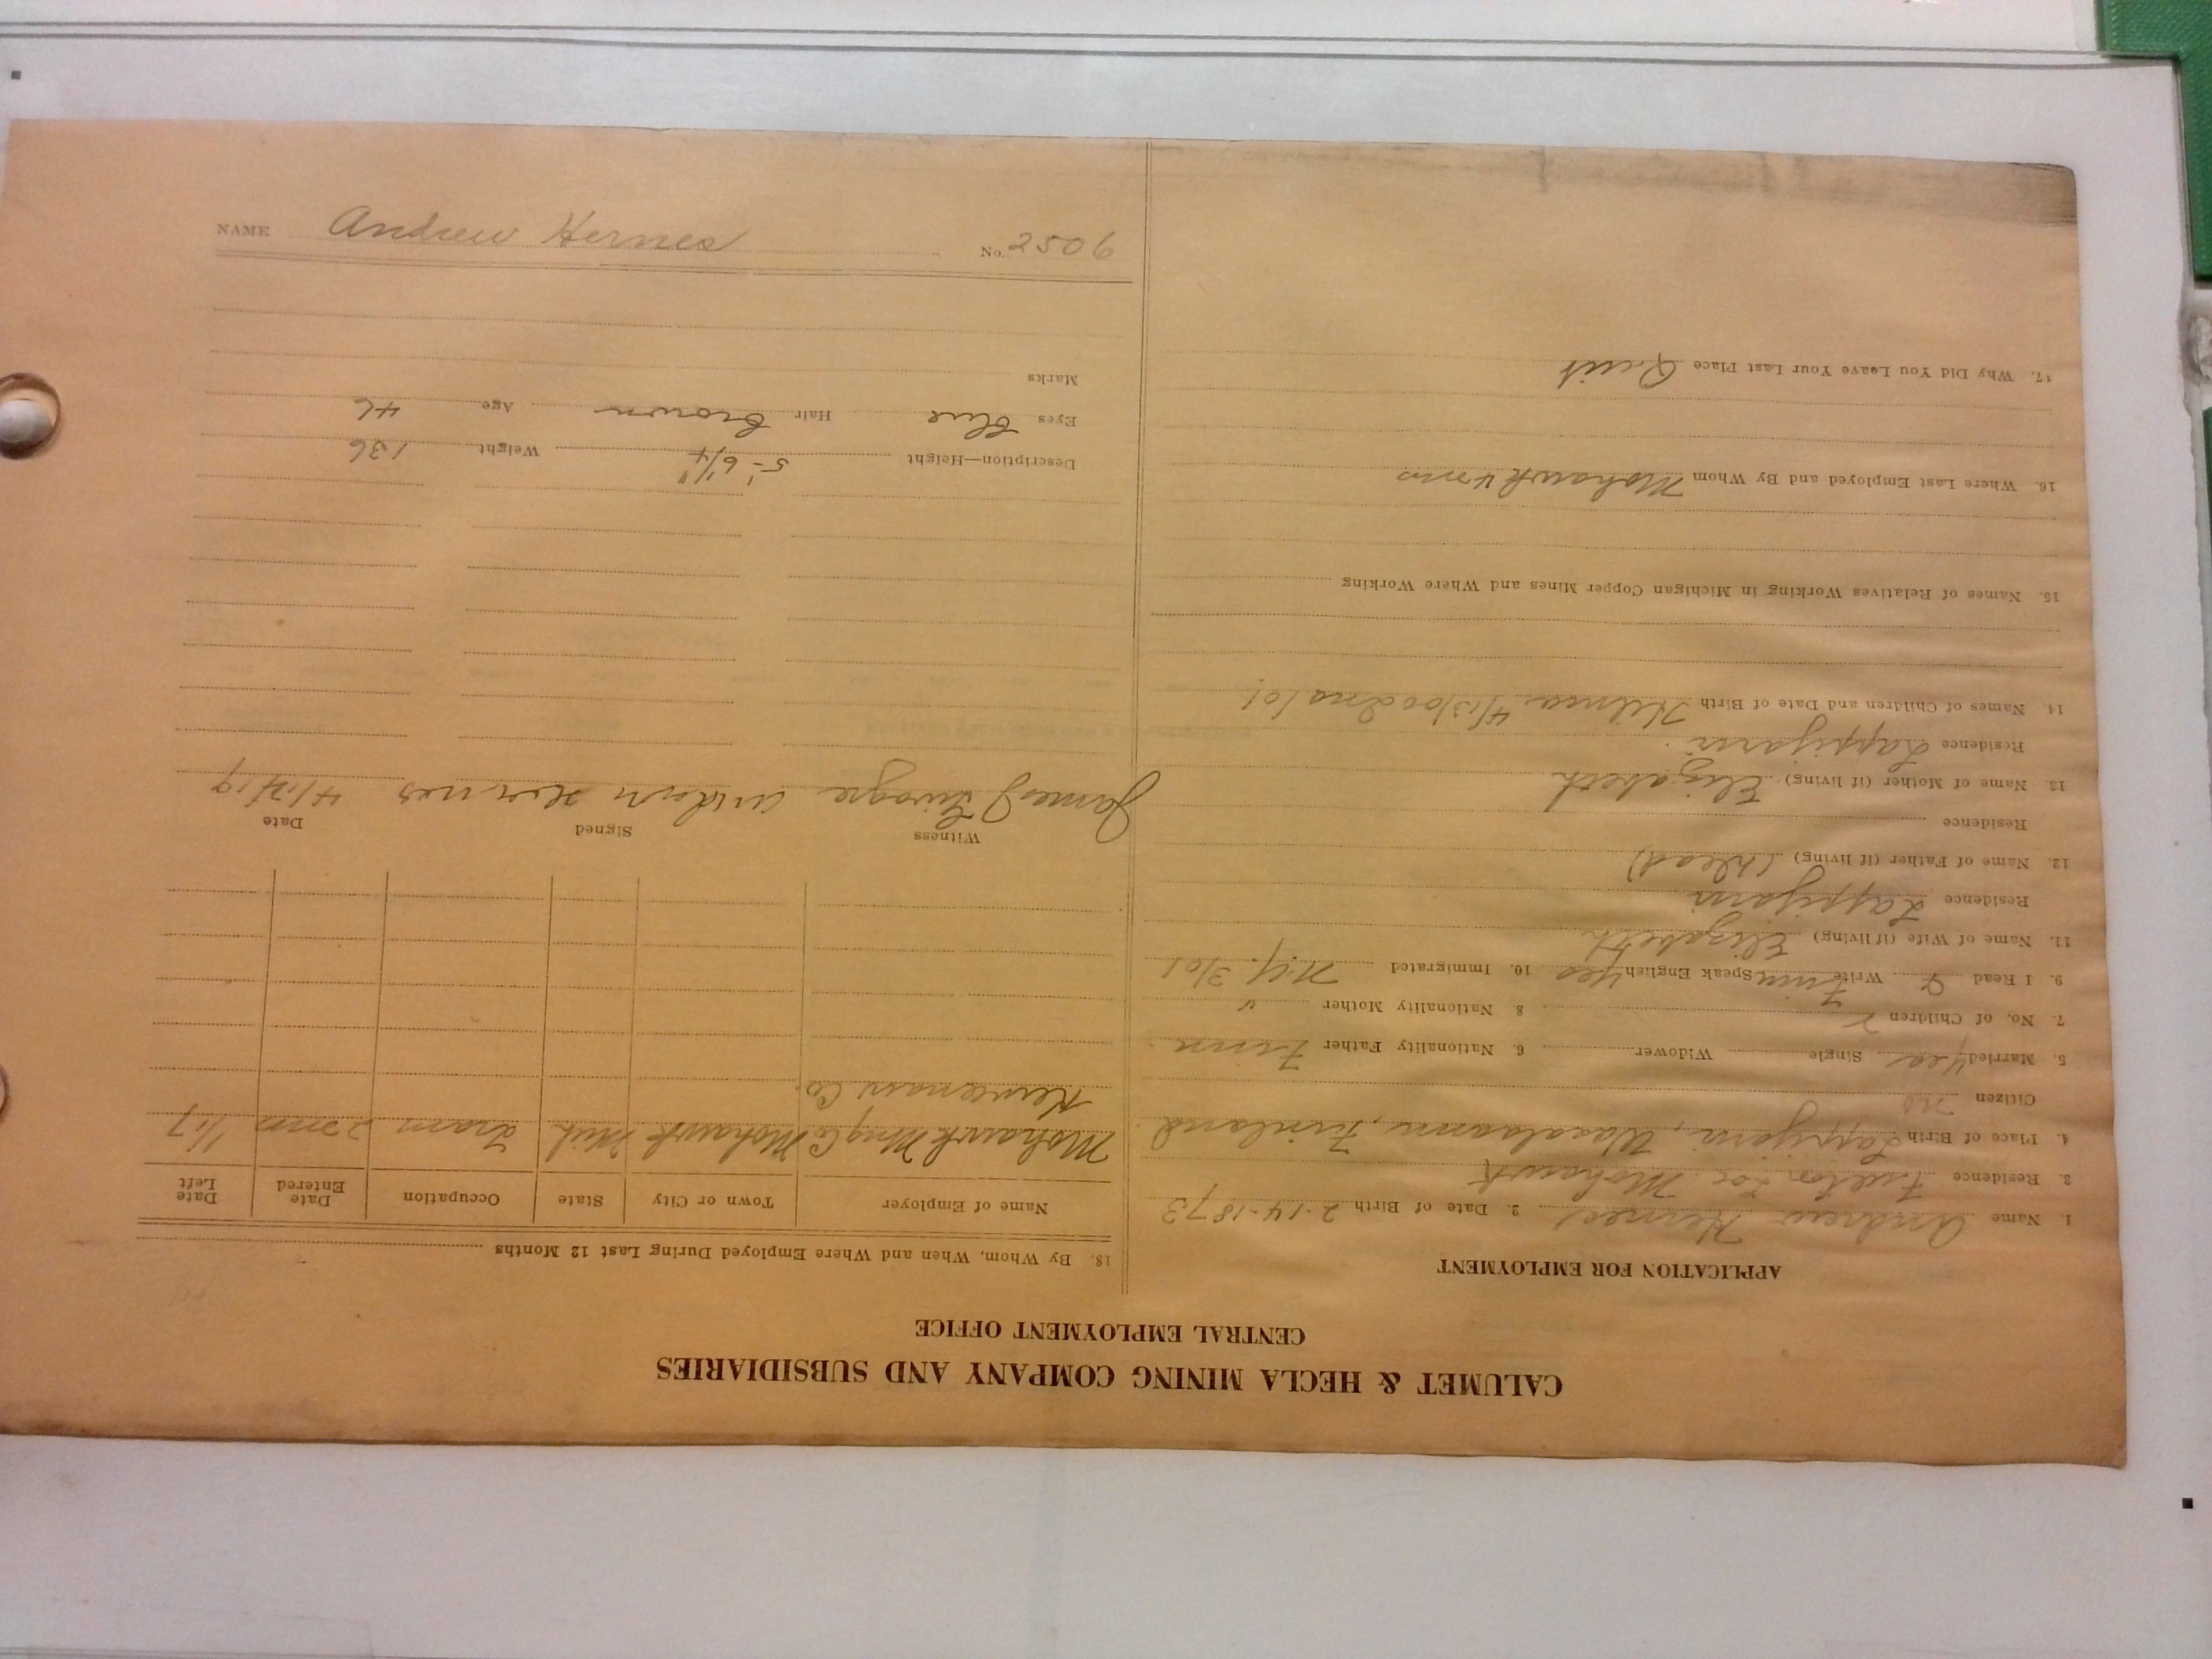 CALUMET & HECLA MINING COMPANY AND SUBSIDIARIES
CENTRAL EMPLOYMENT OFFICE
APPLICATION FOR EMPLOYMENT
1. Name Andrew Hernes 2. Date of Birth 2-14-1873
3. Residence Fulton Loc Mohawk
4. Place of Birth Lappijarvi, Waasalaani, Finland
Citizen no
5. Married yes Single Widower 6. Nationality Father Finn
7. No. of Children 2 8 Nationality Mother "
9. I Read & Write Finn Speak English yes 10. Immigrated N.Y. 3/01
11. Name of Wife (if living) Elizabeth
Residence Lappijarvi
12. Name of Father (if living) (dead)
Residence
13. Name of Mother (if living) Elizabeth
Residence Lappijarvi
14. Names of Children and Date of Birth Hilma 4/13/00
15. Names of Relatives Working in Michigan Copper Mines and Where Working
16. Where Last Employed and By Whom Mohawk 4 mos
17. Why Did You Leave Your Last Place Quit
18. By Whom, When and Where Employed During Last 12 Months
Name of Employer Town or City State Occupation Date Entered Date Left
Mohawk Mng Co Mohawk Mich Tram 2 mos 1/17
Keweenaw Co.
Witness Signed Date
James J Hernes 4/17/19
Description—Height 5'-6 1/4" Weight 136
Eyes blue Hair brown Age 46
Marks
NAME Andrew Hernes No. 2506